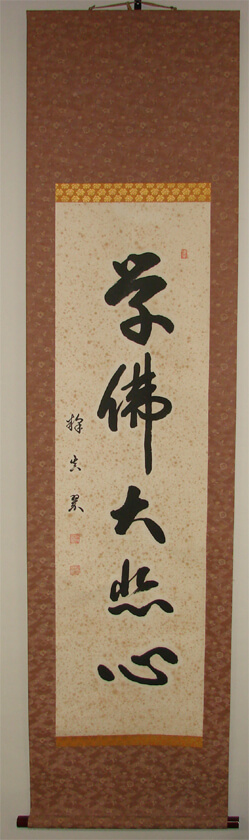 学佛大悲心